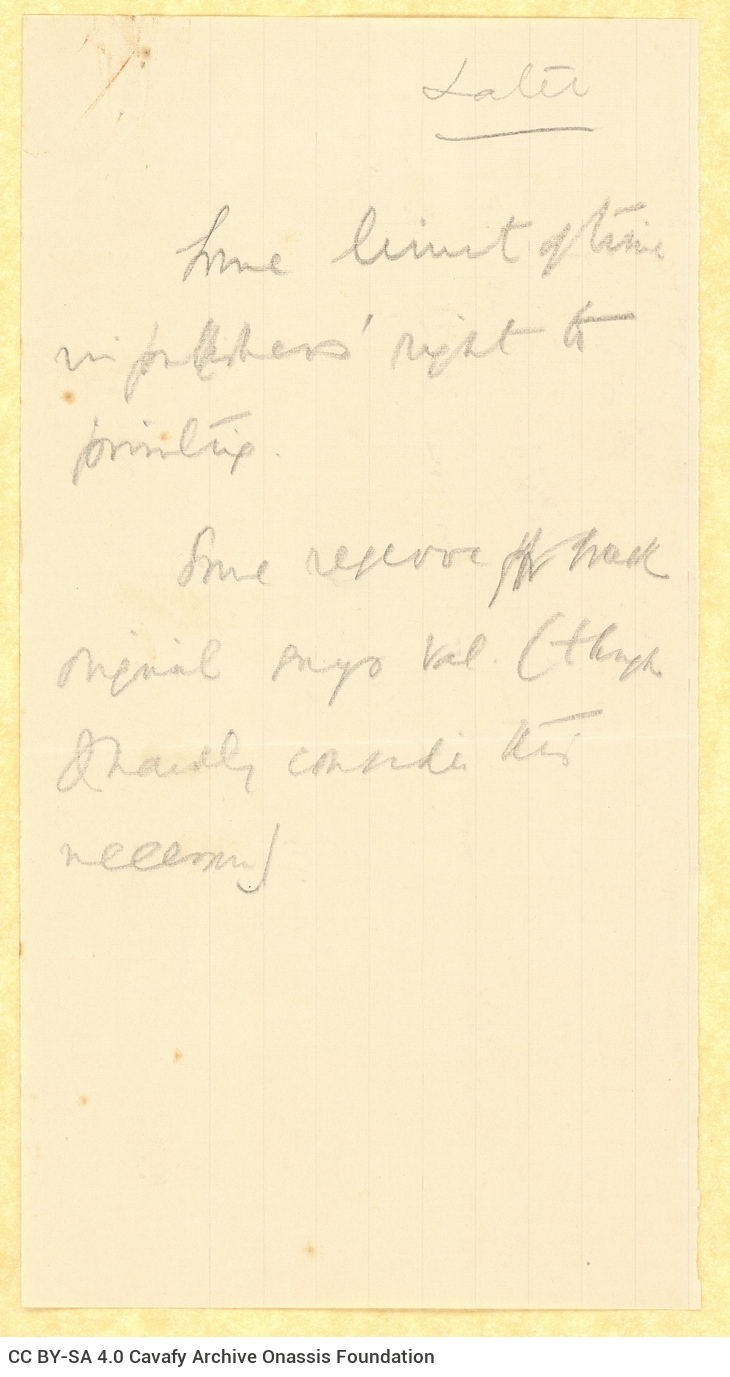 Later
Some limit of time
in publishers' right to
printing.
Some reserve for Greek
original says Val. (though
I hardly consider this
necessary)
CC BY-SA 4.0 Cavafy Archive Onassis Foundation